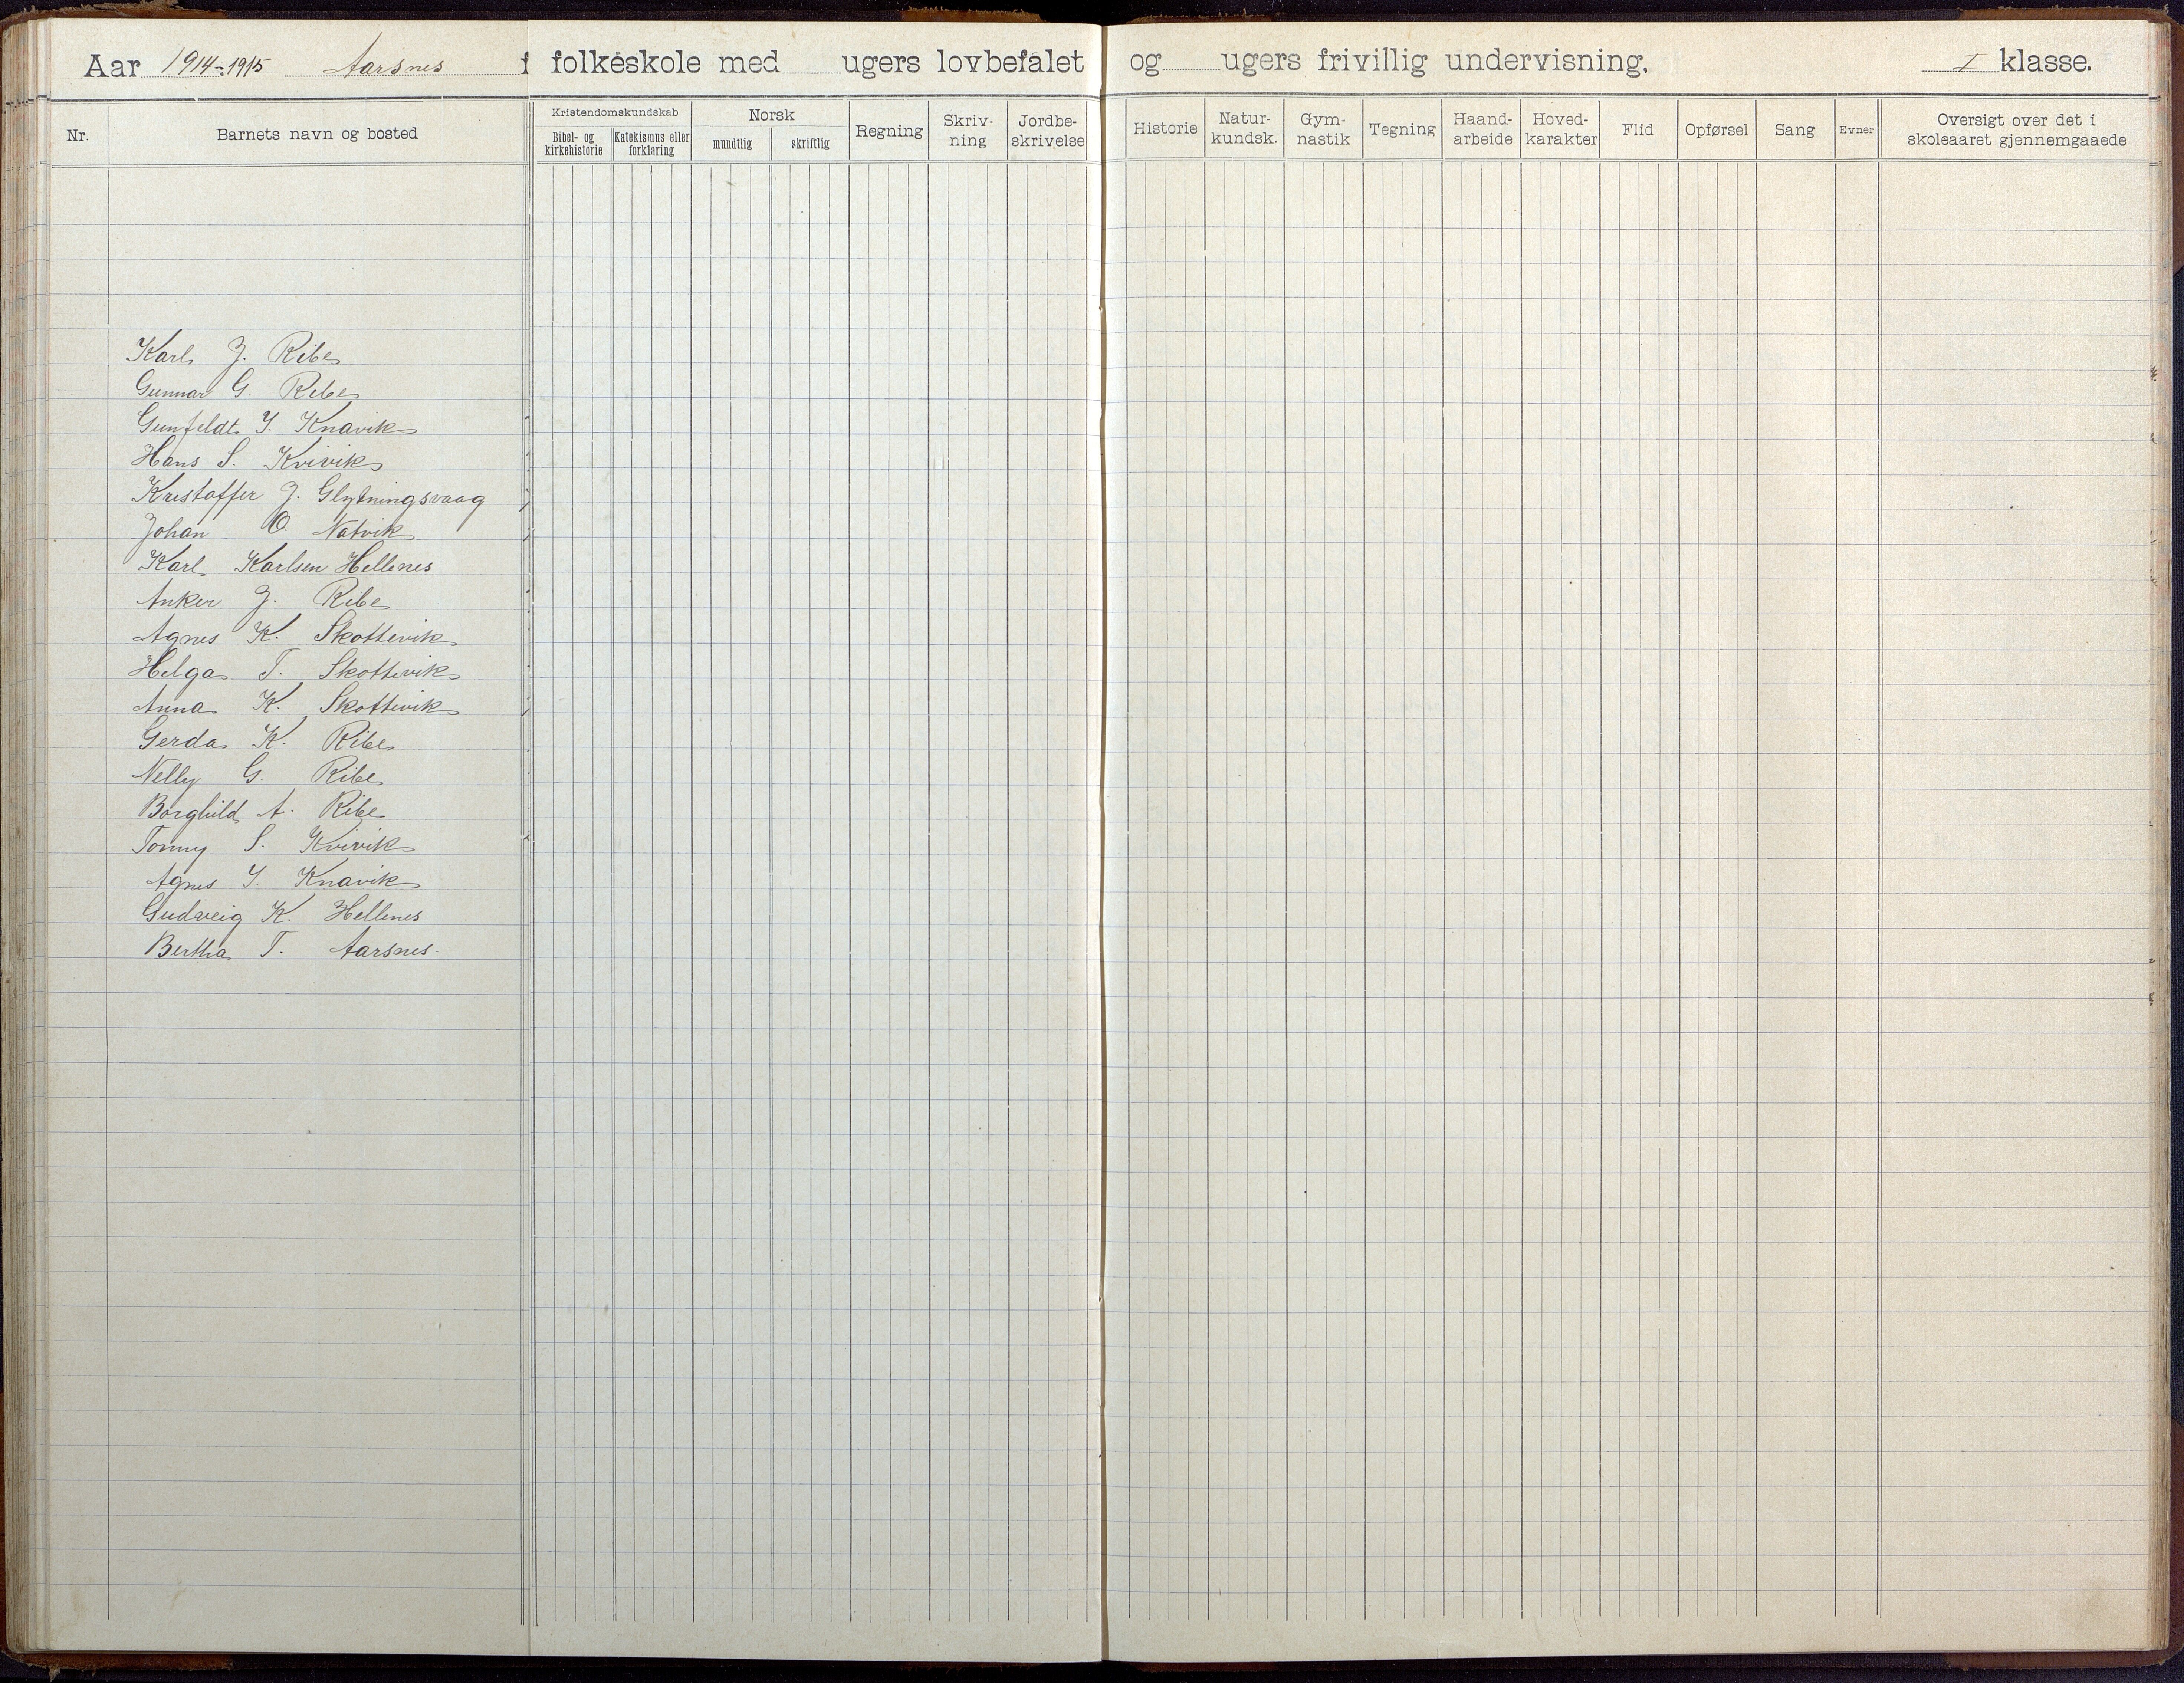 Aar 1914-1915 Aarsnes folkeskole med ugers lovbefalet og ugers frivillig undervisning, I klasse.
Nr.
Barnets navn og bosted
Kristendomskundskab
Bibel- og kirkehistorie
Katekismus eller forklaring
Norsk
mundtlig
skriftlig
Regning
Skriv-
ning
Jordbe-
skrivelse
Historie
Natur-
kundsk.
Gym-
nastik
Tegning
Haand-
arbeide
Hoved-
karakter
Flid
Opførsel
Sang
Evner
Oversigt over det i
skoleaaret gjennemgaaede
Karl J. Ribe
Gunnar G. Ribe
Gunfeldt Y. Knavik
Hans S. Kvivik
Kristoffer J. Glytningsvaag
Johan O. Natvik
Karl Karlsen Hellenes
Anker J. Ribe
Agnes K. Skottevik
Helga T. Skottevik
Anna K. Skottevik
Gerda K. Ribe
Nelly G. Ribe
Borghild A. Ribe
Tonny S. Kvivik
Agnes Y. Knavik
Gudveig K. Hellenes
Bertha T. Aarsnes.